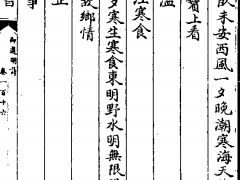 未安西風一夕晚潮寒海天
上看
溫
江寒食
寒生寒食東明野水明無限
故鄉情
御選明詩 卷一百十六